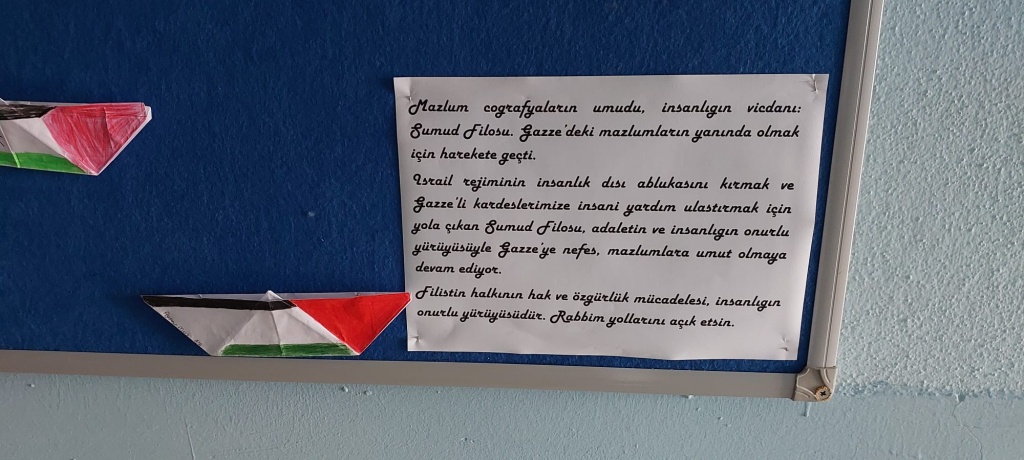 Mazlum cografyaların umudu, insanlıgın vicdanı:
Sumud Filosu. Gazze'deki mazlumların yanında olmak
için harekete geçti.
Israil rejiminin insanlık dısı ablukasını kırmak ve
Gazze'li kardeslerimize insani yardım ulastırmak için
yola çıkan Sumud Filosu, adaletin ve insanlıgın onurlu
yürüyüsüyle Gazze'ye nefes, mazlumlara umut olmaya
devam ediyor.
Filistin halkının hak ve özgürlük mücadelesi, insanlıgın
onurlu yürüyüsüdür. Rabbim yollarını açık etsin.